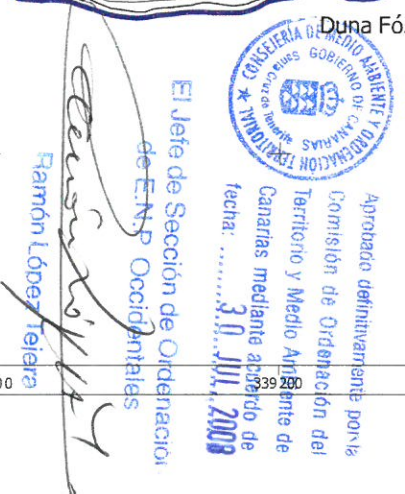 Duna Fó
CONSEJERÍA DE MEDIO AMBIENTE Y ORDENACIÓN TERRITORIAL
GOBIERNO DE CANARIAS
Santa Cruz de Tenerife
Aprobado definitivamente por la
Comisión de Ordenación del
Territorio y Medio Ambiente de
Canarias mediante acuerdo de
fecha: 30 JUL. 2008
El Jefe de Sección de Ordenación
de E.N.P. Occidentales
Ramón López Tejera
339200